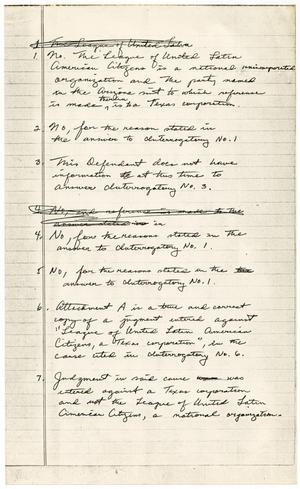 1. The League of United Latin
1. No. The League of United Latin
American Citizens is a national unincorporated
organization and the party named
in the Arizona suit to which reference
is made therein, is a Texas corporation.
2. No, for the reason stated in
the answer to Interrogatory No. 1
3. This Defendant does not have
information at this time to
answer Interrogatory No. 3.
4. No, and reference is made to the
answer stated in
4. No, for the reasons stated in the
answer to Interrogatory No. 1.
5 No, for the reasons stated in the
answer to Interrogatory No. 1.
6. Attachment A is a true and correct
copy of a judgment entered against
"League of United Latin American
Citizens, a Texas corporation", in the
cause cited in Interrogatory No. 6.
7. Judgment in said cause was
entered against a Texas corporation
and not the League of United Latin
American Citizens, a national organization.